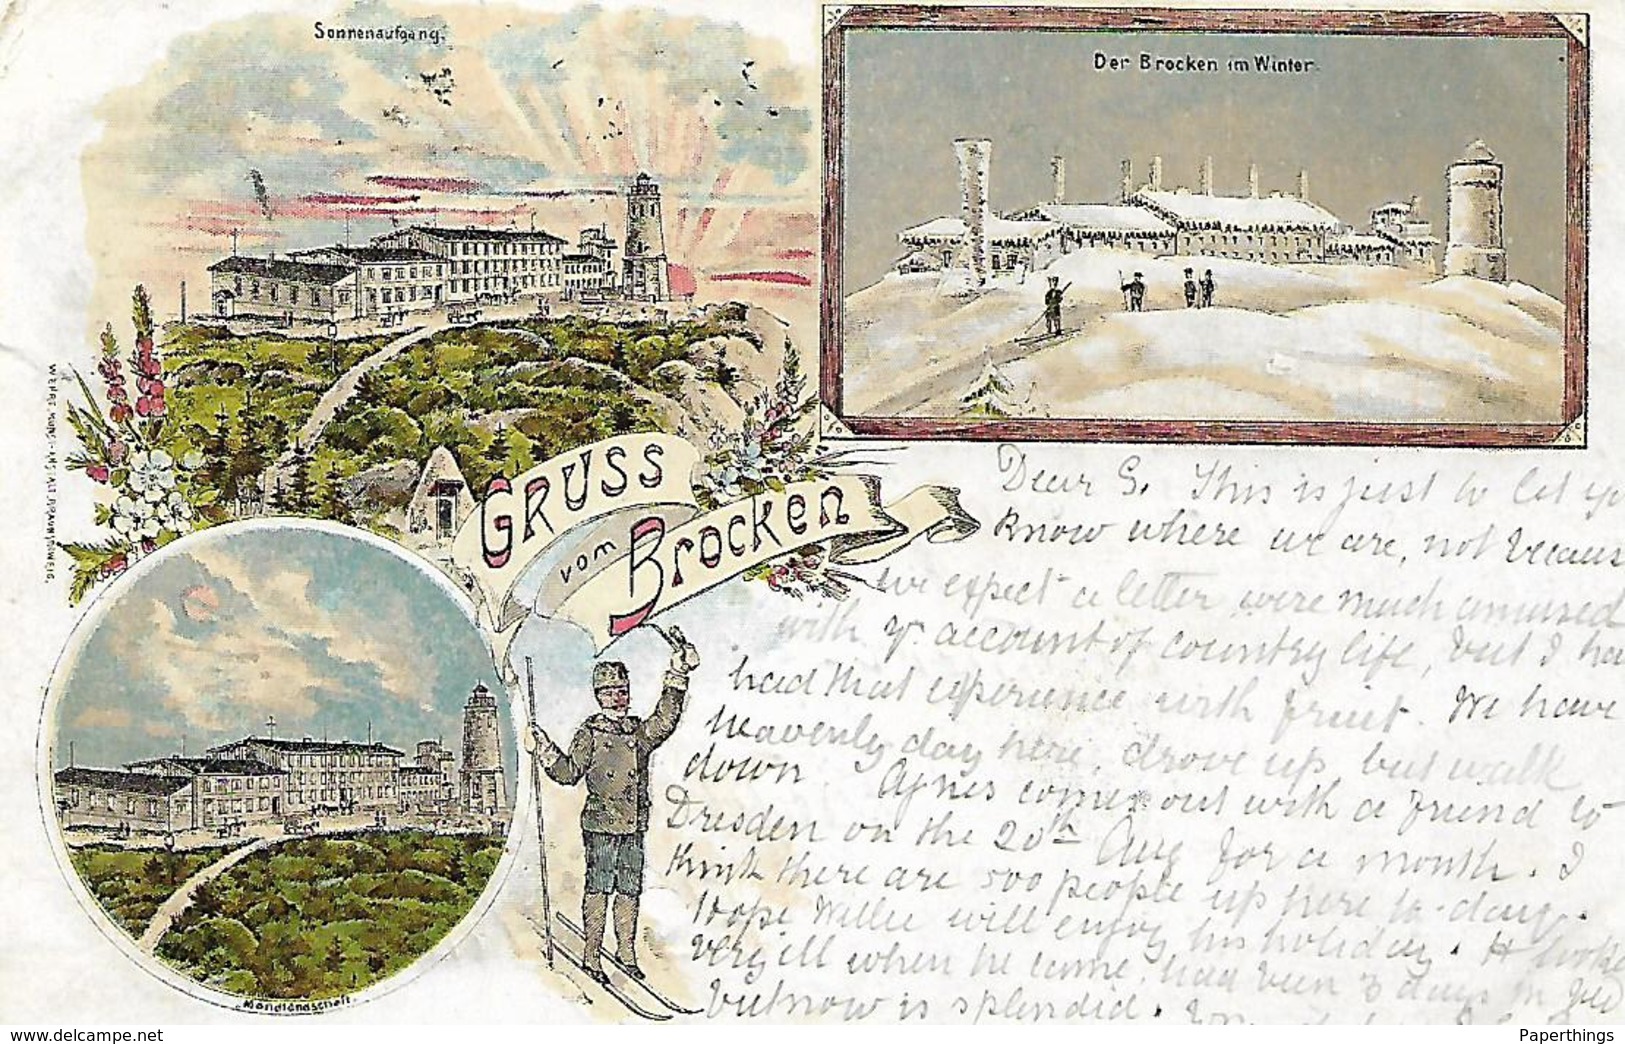 Sonnenaufgang.
Der Brocken im Winter.
GRUSS
vom
Brocken
Mondlandschaft.
Dear G. This is just to let yo
know where we are, not becaus
we expect a letter were much amused
with yr account of country life, but I ha
had that experience with fruit. We have
heavenly day here, drove up, but walk
down Agnes comes out with a friend to
Dresden on the 20th Aug for a month. I
think there are 500 people up here to-day.
hope Willie will enjoy his holiday. H looke
very ill when he came, had been 3 days in bed
but now is splendid.
delcampe.net
Paperthings